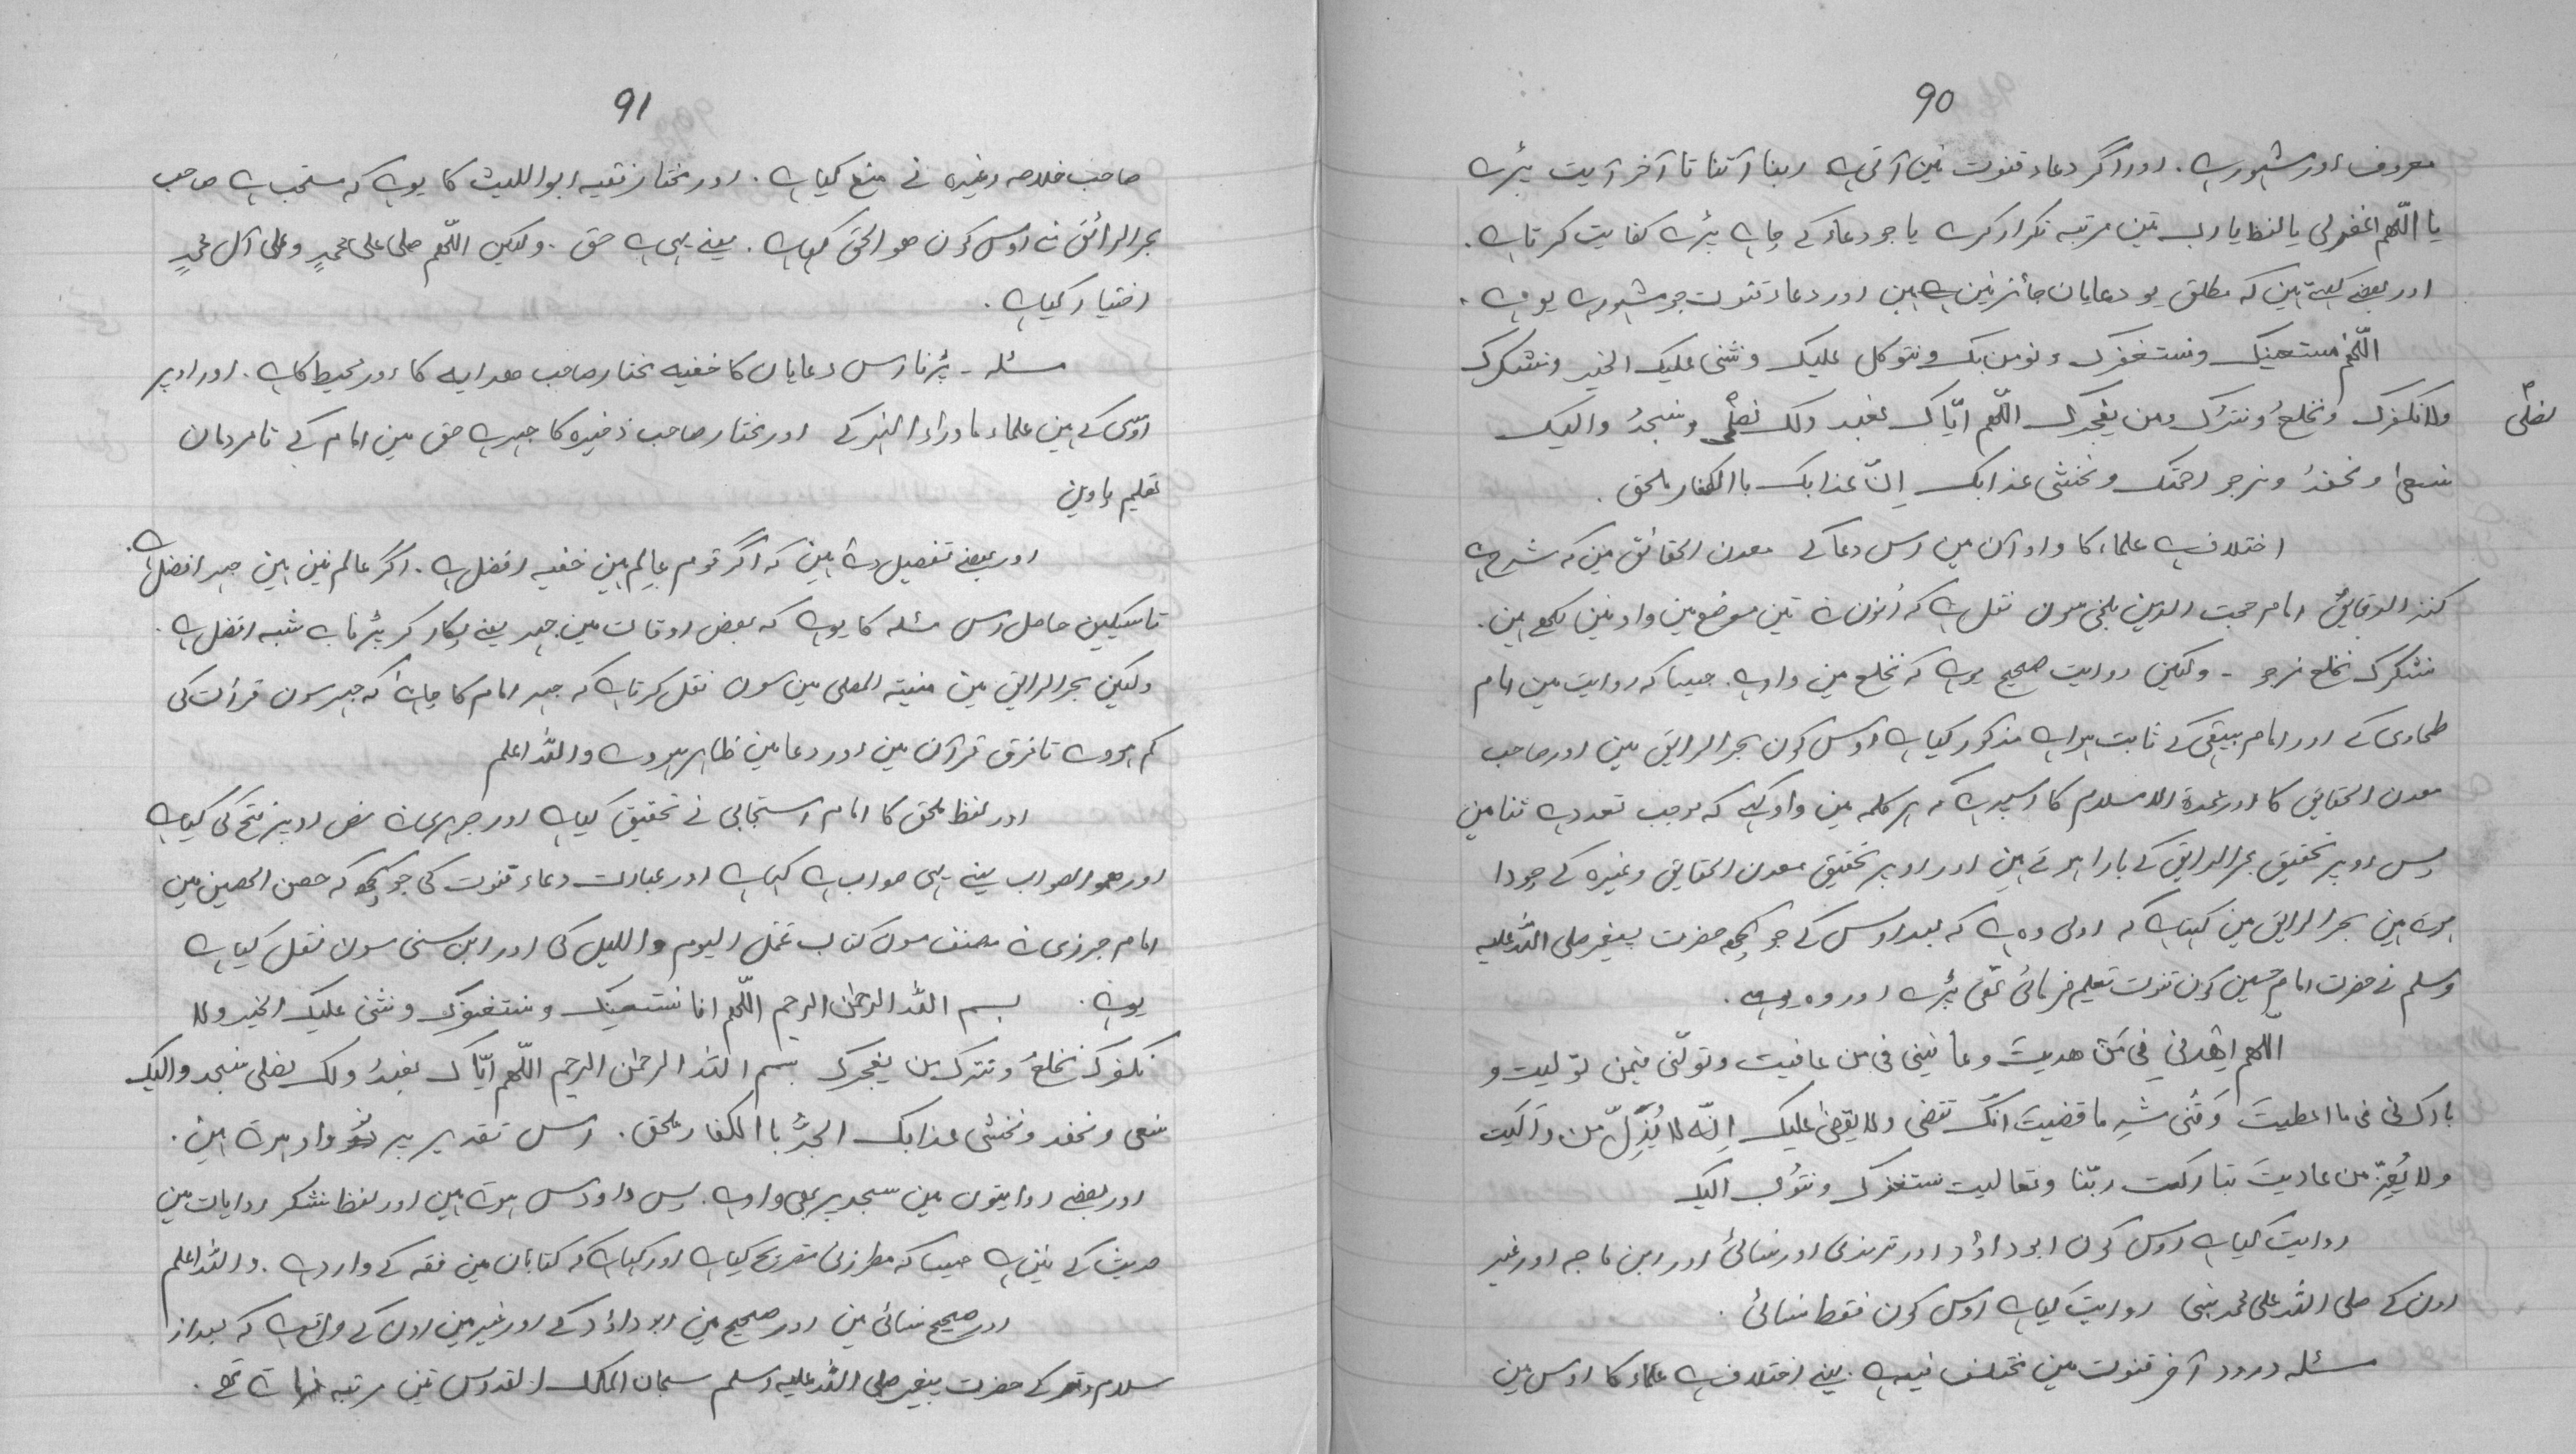 90
معروف اور مشہور ہے. اور اگر دعاء قنوت نین آتی ہے ربنا آتنا تا آخر آیت پڑے
یا اللّٰھم اغفرلی یا لفظ یا رب تین مرتبہ تکرار کرے یا جو دعاء کے چاہے پڑے کفایت کرتا ہے.
اور بعضے کہتے ہین کہ مطلق یو دعایان جائز نین ہین اور دعاء قنوت جو مشہور ہے یو ہے.
اللّٰھم نستعینک ونستغفرک ونومن بک ونتوکل علیک ونثنی علیک الخیر ونشکرک
ولا نکفرک ونخلعُ ونترک ومن یفجرک اللّٰھم ایّاک نعبد ولک نصلّی ونسجدُ والیک
نصلّی
نسعیٰ ونحفدُ ونرجو رحمتک ونخشی عذابک اِنّ عذابک باالکفار ملحق.
اختلاف ہے علماء کا واو آن مین اس دعا کے معدن الحقائق مین کہ شرح ہے
کنز الدقایق امام حجت الدین بلخی سون نقل ہے کہ اُنون نے تین موضع مین واو نین لکھے ہین.
نشکرک نخلع نرجو - ولیکن روایت صحیح یو ہے کہ نخلع مین واو ہے. جیسا کہ روایت مین امام
طحاوی کے اور امام بیہقی کے ثابت ہوا ہے مذکور کیا ہے اوس کون بحر الرایق مین اور صاحب
معدن الحقایق کا اور عمدة الاسلام کا اسپر ہے کہ ہر کلمہ مین واو کہے کہ موجب تعدد ہے ثنا مین
پس اوپر تحقیق بحر الرایق کے بارا ہوتے ہین اور اوپر تحقیق معدن الحقایق وغیرہ کے چودا
ہوتے ہین بحر الرایق مین کہتا ہے کہ اولی وہ ہے کہ بعد اوس کے جو کچھ حضرت پیغمبر صلی اللہ علیہ
وسلم نے حضرت امام حسین کون قنوت تعلیم فرمائی تھی پڑے اور وہ یو ہے.
اللّٰھم اِھدنِی فِی مَن ھدیتَ وعافینی فی من عافیت وتولّنی فیمن تولیت و
بارک لی فی ما اعطیتَ وَقنی شرِ ما قضیتَ انکَ تقضی ولا یقضٰی علیک اِنّہ لا یُذِلّ من والیت
ولا یُعِزّ من عادیتَ تبارکت ربّنا وتعالیت نستغفرک ونتوُب الیک
روایت کیا ہے اوس کون ابو داؤد اور ترمذی اور نسائی اور ابن ماجہ اور غیر
اون کے صلی اللہ علی محمد نبی روایت کیا ہے اوس کون فقط نسائی.
مسئلہ درود آخر قنوت مین مختلف فیہ ہے. یعنے اختلاف ہے علماء کا اوس مین
91
صاحب خلاصہ وغیرہ نے منع کیا ہے. اور مختار فقیہ ابو اللیث کا یو ہے کہ مستحب ہے صاحب
بحر الرائق نے اوس کون ھو الحق کہا ہے. یعنے یہی ہے حق. ولیکن اللّٰھم صلی علی محمدٍ وعلی آل محمدٍ
اختیار کیا ہے.
مسئلہ - پڑنا اس دعایان کا خفیہ مختار صاحب ھدایہ کا اور محیط کا ہے. اور اوپر
اوسی کے ہین علماء ماوراء النہر کے اور مختار صاحب ذخیرہ کا جہر ہے حق مین امام کے تا مردمان
تعلیم پاوین
اور بعضے تفصیل دتے ہین کہ اگر قوم عالِم ہین خفیہ افضل ہے. اگر عالم نین ہین جہر افضل ہے.
تاسیکین حاصل اس مسئلہ کا یو ہے کہ بعض اوقات مین جہر یعنے پکار کر پڑنا بے شبہ افضل ہے.
ولیکن بحر الرایق مین منیتہ المصلی مین سون نقل کرتا ہے کہ جہر امام کا چاہے کہ جہر سون قرأت کی
کم ہووے تا فرق قرآن مین اور دعا مین ظاہر ہووے واللہ اعلم
اور لفظ ملحق کا امام اسبیجابی نے تحقیق کیا ہے اور جوہری نے نص اوپر فتح کی کیا ہے
اور ھو الصواب یعنے یہی صواب ہے کہا ہے اور عبارت دعاء قنوت کی جو کچھ کہ حصن الحصین مین
امام جزری نے مصنف سون کتاب عمل الیوم واللیل کی اور ابن سنی سون نقل کیا ہے
یو ہے. بسم اللہ الرحمٰن الرحیم اللّٰھم انا نستعینک ونستغفرک ونثنی علیک الخیر ولا
نکفرک نخلعُ ونترک من یفجرک بسم اللہ الرحمٰن الرحیم اللّٰھم ایّاک نعبدُ ولک نصلی نسجد والیک
نسعی ونحفد ونخشٰی عذابک الجدُ باالکفار ملحق. اس تقدیر پر نو واو ہوتے ہین.
اور بعضے روایتون مین نسجد پر بھی واو ہے. پس واو دس ہوتے ہین اور لفظ نشکر روایات مین
حدیث کے نین ہے جیسا کہ مطرزی تصریح کیا ہے اور کہا ہے کہ کتابان مین فقہ کے وارد ہے. واللہ اعلم
اور صحیح نسائی مین اور صحیح مین ابو داؤد کے اور غیر مین اون کے واقع ہے کہ بعد از
سلام وتر کے حضرت پیغمبر صلی اللہ علیہ وسلم سبحان الملک القدوس تین مرتبہ فرماتے تھے.